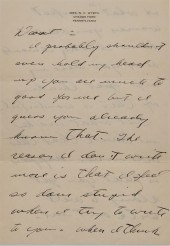 Dwat:
I probably shouldn't
even hold my head
up you are much to
good for me but I
guess you already
know that. The
reason I don't write
more is that I feel
so darn stupid
when I try to write
to you. when I think